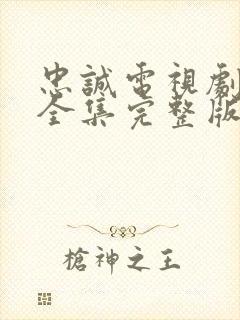 忠誠電視劇
全集完整版
槍神之王